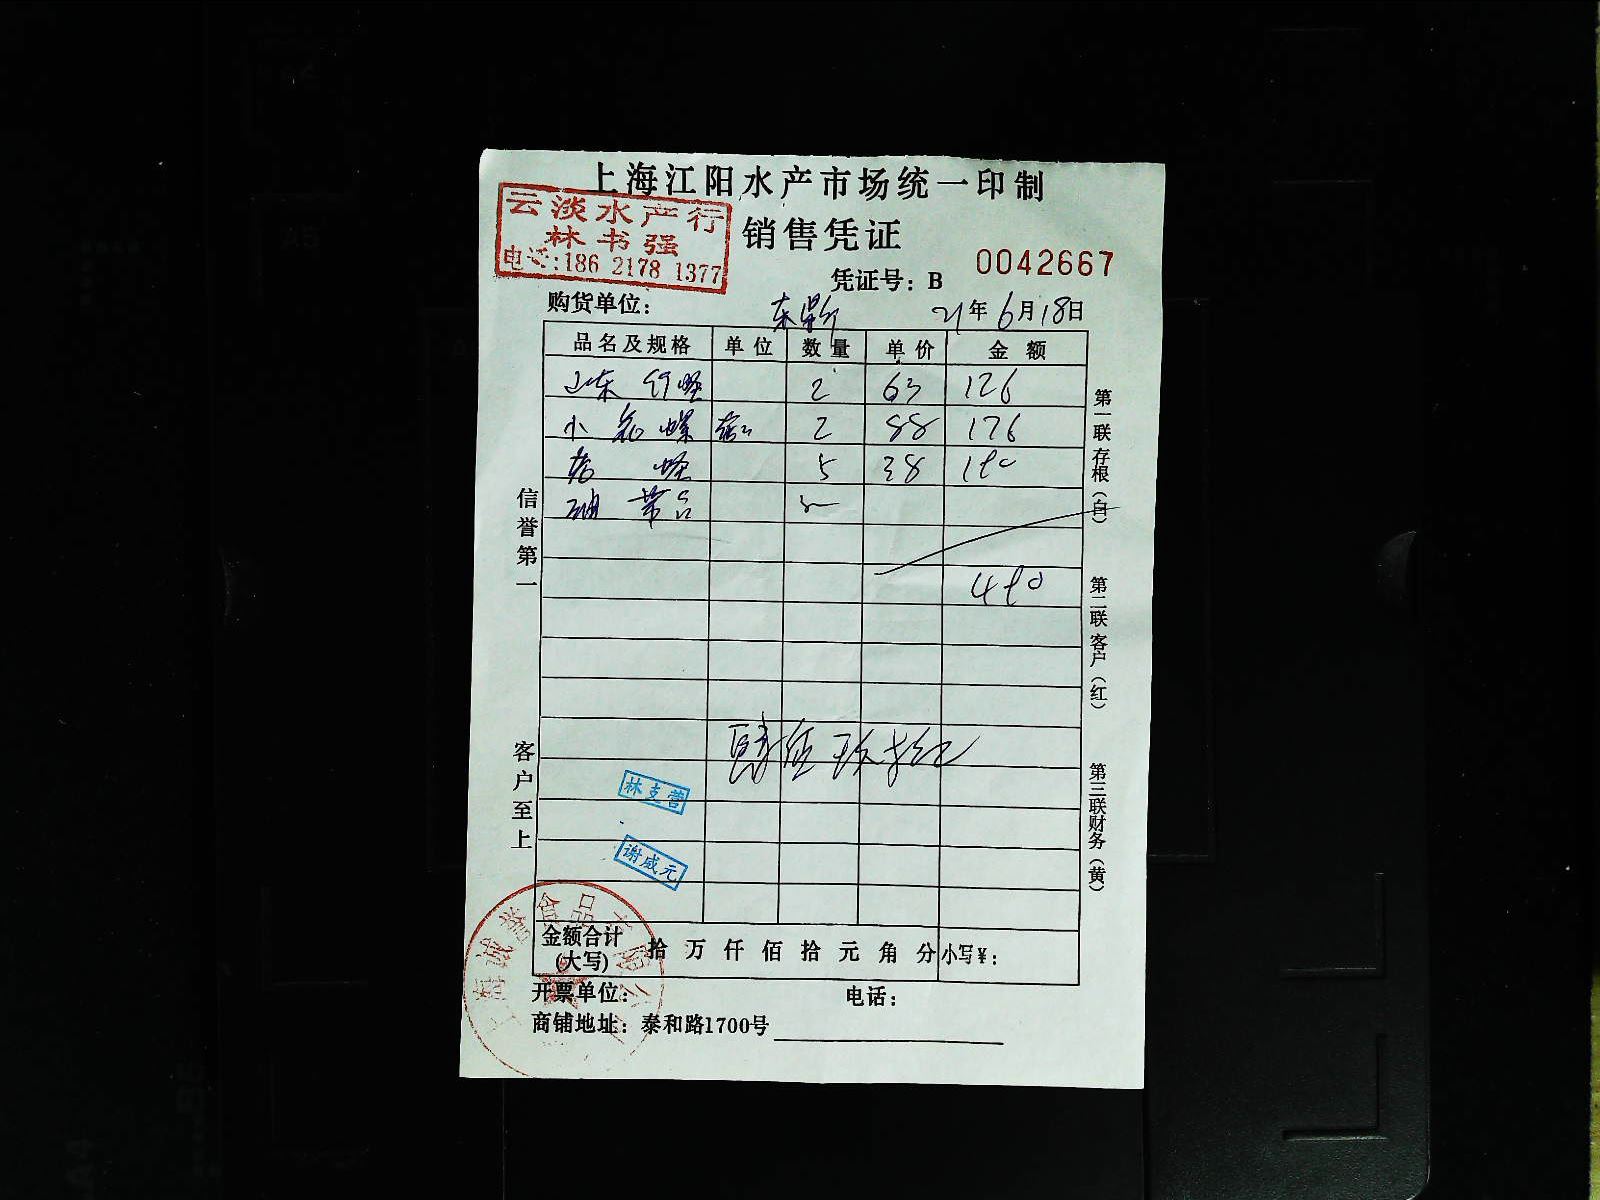 上海江阳水产市场统一印制
云淡水产行
林书强
电话:186 2178 1377
销售凭证
凭证号：B 0042667
购货单位： 21年6月18日
品名及规格 单位 数量 单价 金额
山东 2 63 126
小花螺 2 88 176
5 38 190
带 3
490
肆佰玖拾
信誉第一
客户至上
第一联 存根（白）
第二联 客户（红）
第三联 财务（黄）
林支营
谢威元
金额合计(大写) 拾 万 仟 佰 拾 元 角 分 小写¥：
开票单位： 电话：
商铺地址：泰和路1700号